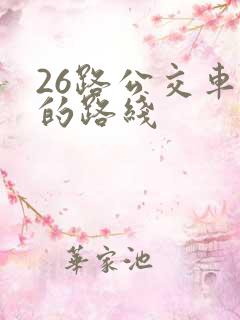 26路公交车
的路线
華家池